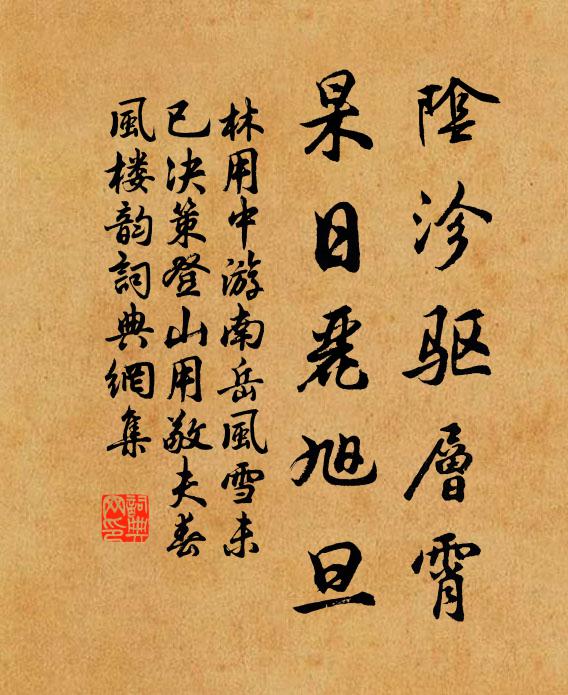 陰沴驱層霄
杲日麗旭旦
林用中游南岳風雪未
已决策登山用敬夫春
風楼韵詞典網集
詞典网印